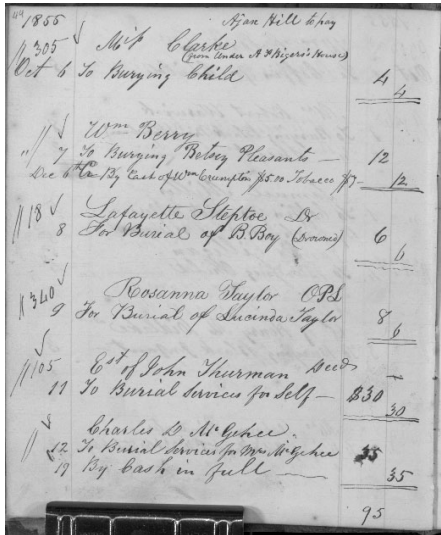 44 1855 Ajax Hill to pay
// 305 Miss Clarke
(from Under A P Biger's House)
Oct 6 To Burying Child 4
4
// Wm Berry
" 7 To Burying Betsey Pleasants — 12
Dec 6th Cr By Cash of Wm Crumpton $5.00 Tobacco $7 — 12
// 18 Lafayette Steptoe Dr
8 For Burial of B. Boy (Drowned) 6
6
// 340 Rosanna Taylor
9 For Burial of Lucinda Taylor 8
6
// 105 Est of John Thurman Decd
11 To Burial Services for Self — $30
30
// 8 Charles D. McGehee.
12 To Burial Services for Mrs McGehee 35
19 By Cash in full — 35
95